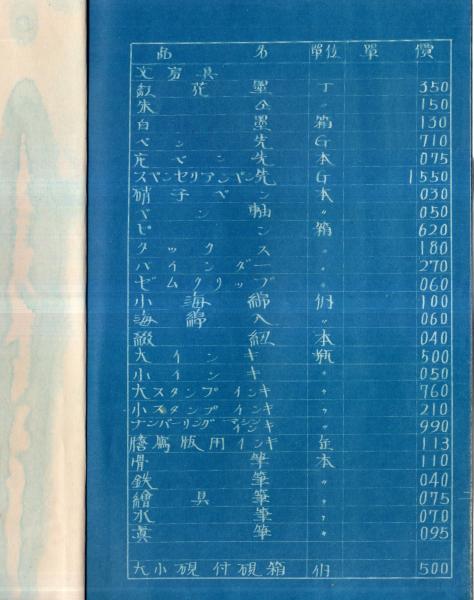 品 名 單位 單 價
文房具
紅花墨 丁 350
朱墨 〃 150
白墨 箱 130
ペン先 G 710
丸ペン先 本 075
スペンセリアンペン先 G 1550
硝子ペン 本 030
ペン軸 〃 050
ピン 箱 620
タックス 〃 180
バインダー 〃 270
ゼムクリップ 〃 060
小海綿 个 100
海綿入 〃 060
綴紐 本 040
大インキ 瓶 500
小インキ 〃 050
大スタンプインキ 〃 760
小スタンプインキ 〃 210
ナンバーリングマシンインキ 〃 990
謄寫版用インキ 缶 113
骨筆 本 110
鉄筆 〃 040
繪具筆 〃 075
水筆 〃 070
眞筆 〃 095
大小硯付硯箱 个 500